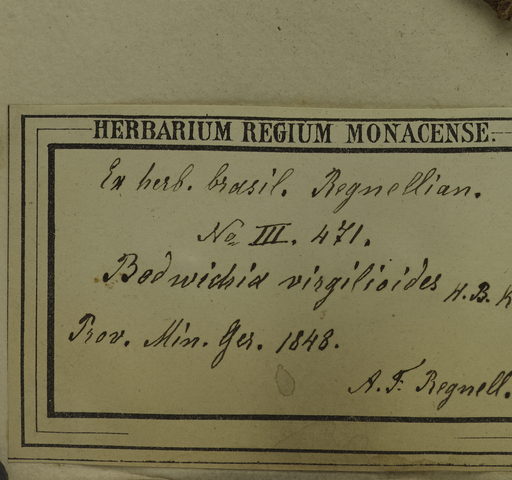 HERBARIUM REGIUM MONACENSE.
Ex herb. brasil. Regnellian.
No III. 471.
Bodwichia virgilioides H. B. K
Prov. Min. Ger. 1848.
A. F. Regnell.